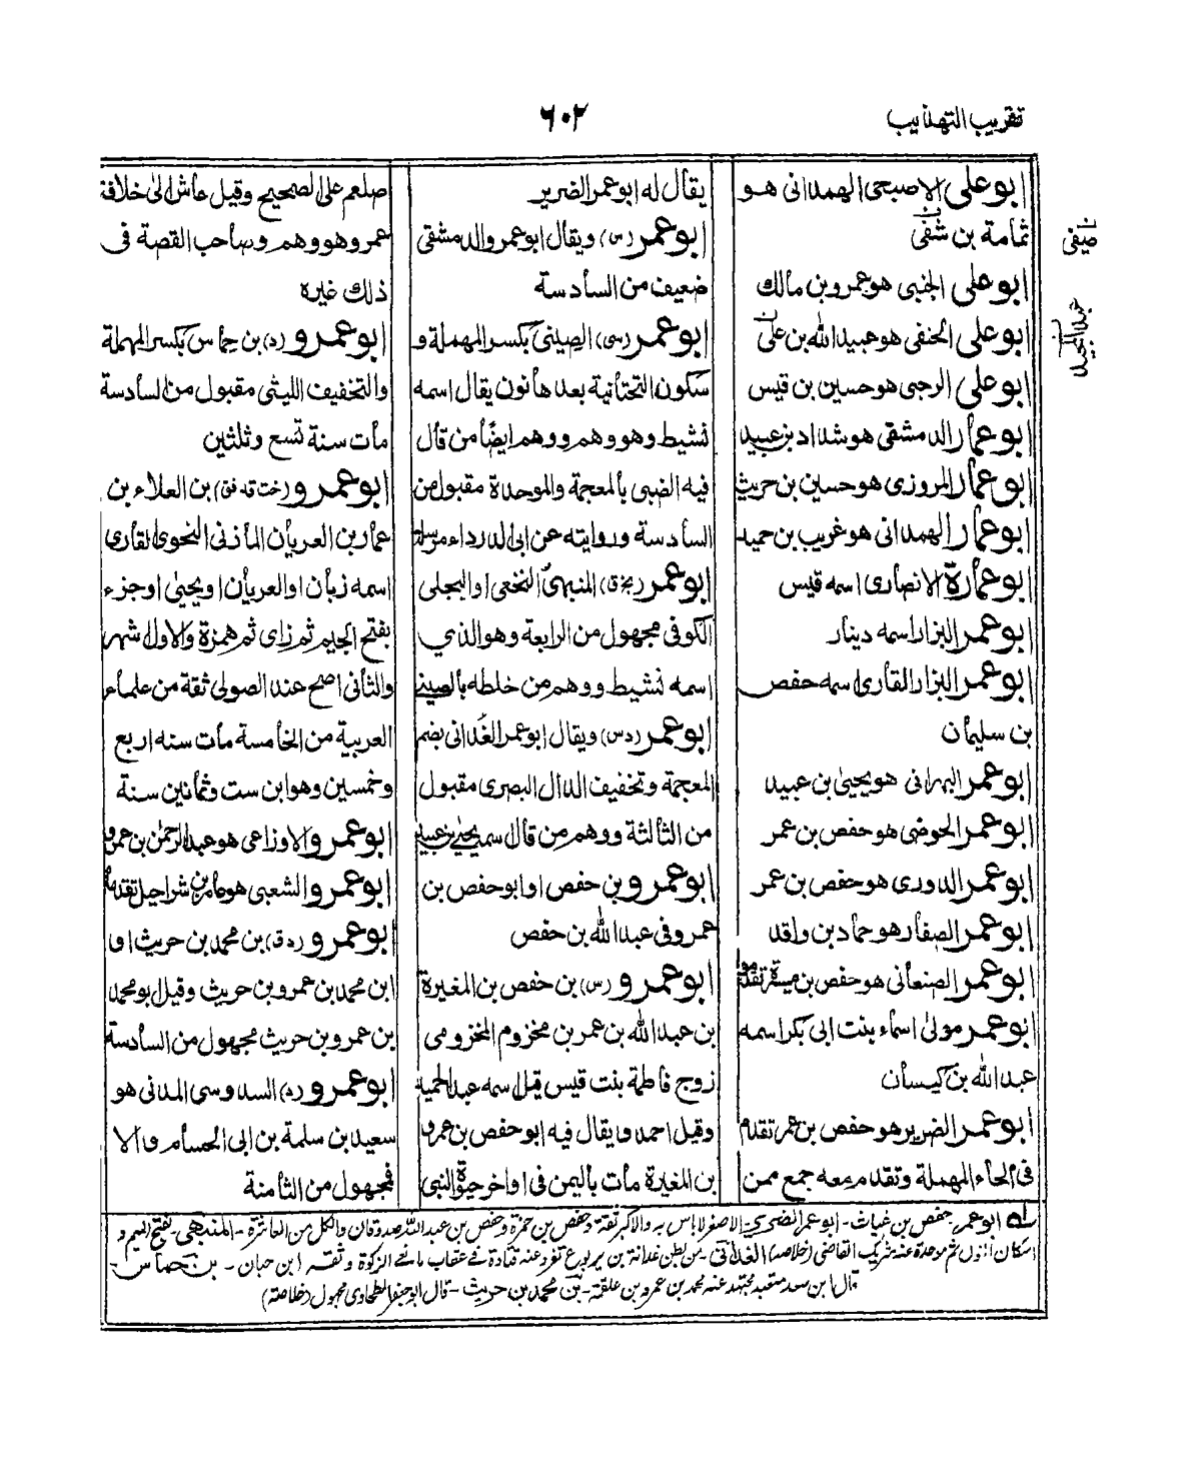 تقريب التهذيب
٦٠٢
ابو على الاصبحى الهمدانى هو
ثمامة بن شفى
ابو على الجنبى هو عمرو بن مالك
ابو على الحنفى هو عبيد الله بن
ابو على الرحبى هو حسين بن قيس
ابو عمار الدمشقى هو شداد بن عبيد
ابو عمار المروزى هو حسين بن حريث
ابو عمار الهمدانى هو غريب بن حميد
ابو عمارة الانصارى اسمه قيس
ابو عمر البزار اسمه دينار
ابو عمر البزار القارى اسمه حفص
بن سليمان
ابو عمر البهرانى هو يحيى بن عبيد
ابو عمر الحوضى هو حفص بن عمر
ابو عمر الدورى هو حفص بن عمر
ابو عمر الصفار هو حماد بن واقد
ابو عمر الصنعانى هو حفص بن ميسرة تقدموا
ابو عمر مولى اسماء بنت ابى بكر اسمه
عبد الله بن كيسان
ابو عمر الضرير هو حفص بن عمر تقدم
فى الحاء المهملة وتقدم معه جمع ممن
يقال له ابو عمر الضرير
ابو عمر (س) ويقال ابو عمرو الدمشقى
ضعيف من السادسة
ابو عمر (سى) الصينى بكسر المهملة و
سكون التحتانية بعدها نون يقال اسمه
نشيط وهو وهم ووهم ايضا من قال
فيه الضبى بالمعجمة والموحدة مقبول من
السادسة وروايته عن ابى الدرداء مرسلة
ابو عمر (بخ ق) المنبهى النخعى او البجلى
الكوفى مجهول من الرابعة وهو الذي
اسمه نشيط ووهم من خلطه بالصينے
ابو عمر (د س) ويقال ابو عمر الغدانى بضم
المعجمة وتخفيف الدال البصرى مقبول
من الثالثة ووهم من قال اسمه يحيے بن عبيد
ابو عمرو بن حفص او ابو حفص بن
عمرو فى عبد الله بن حفص
ابو عمرو (س) بن حفص بن المغيرة
بن عبد الله بن عمر بن مخزوم المخزومى
زوج فاطمة بنت قيس قيل اسمه عبد الحميد
وقيل احمد ويقال فيه ابو حفص بن عمرو
بن المغيرة مات باليمن فى اواخر حيوة النبى
صلعم على الصحيح وقيل عاش الى خلافة
عمر وهو وهم وصاحب القصة فى
ذلك غيره
ابو عمرو (د) بن حماس بكسر المهملة
والتخفيف الليثى مقبول من السادسة
مات سنة تسع وثلثين
ابو عمرو (خت قد فق) بن العلاء بن
عمار بن العريان المازنى النحوى القارى
اسمه زبان او العريان او يحيى او جزء
بفتح الجيم ثم زاى ثم همزة والاول اشهر
والثانى اصح عند الصولى ثقة من علماء
العربية من الخامسة مات سنه اربع
وخمسين وهو ابن ست وثمانين سنة
ابو عمرو الاوزاعى هو عبد الرحمن بن عمرو
ابو عمرو الشعبى هو عامر بن شراحيل تقدما
ابو عمرو (د ق) بن محمد بن حريث او
ابن محمد بن عمرو بن حريث وقيل ابو محمد
بن عمرو بن حريث مجهول من السادسة
ابو عمرو (د) السدوسى المدنى هو
سعيد بن سلمة بن ابى الحسام والا
فمجهول من الثامنة
له ابو عمر حفص بن غياث - ابو عمر الضرير - الاصغر لاباس به والاكبر ثقة وحفص بن حمزة وحفص بن عبد اللہ صدوقان والكل من العاشرة - المنبهى - بفتح الميم و
اسكان النون ثم موحدة عنه شريك القاضى (خلاصه) الغدانى - من بطن غدانة بن يربوع تفرد عنه قتادة فى عقاب مانع الزكوة وثقه ابن حبان - بن حماس -
قال ابن سعد متعبد مجتهد عنه محمد بن عمرو بن علقمة - بن محمد بن حريث - قال ابو جعفر الطحاوى مجهول (خلاصه)
عبد المجيد